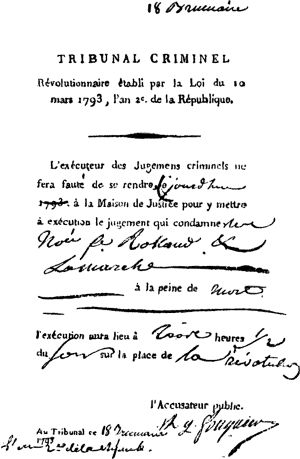 18 Brumaire
TRIBUNAL CRIMINEL
Révolutionnaire établi par la Loi du 10
mars 1793, l'an 2e. de la République.
L'exécuteur des Jugemens criminels ne
fera faute de se rendre, ce jourd'hui
1793. à la Maison de Justice pour y mettre
à exécution le jugement qui condamne
Rolland &
Lamarche
à la peine de mort
l'exécution aura lieu à trois heures 1/2
du soir sur la place de la révolution
l'Accusateur public.
Au Tribunal ce 18 Brumaire A. q. Fouquier
1793